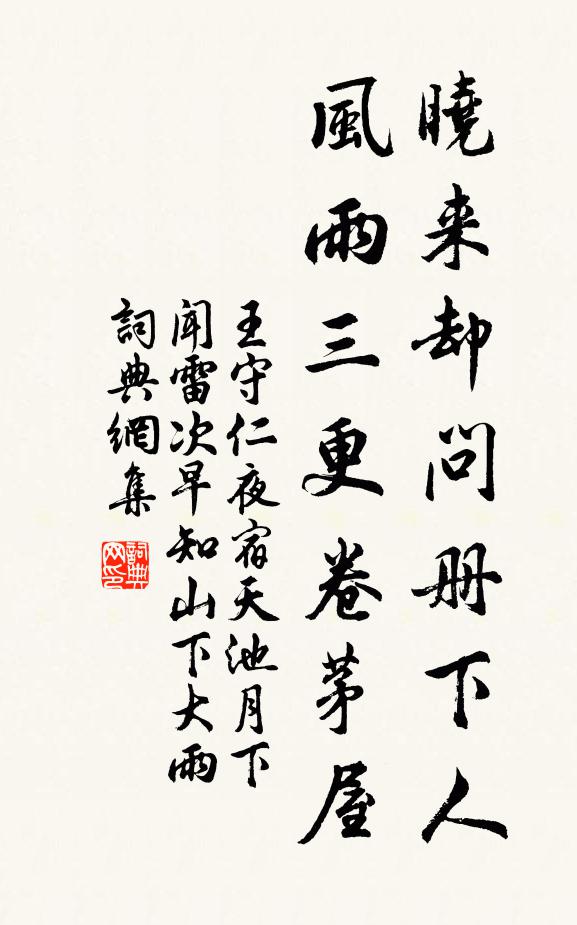 曉来却問册下人
風雨三更卷茅屋
王守仁夜宿天池月下
聞雷次早知山下大雨
詞典網集
詞典网印